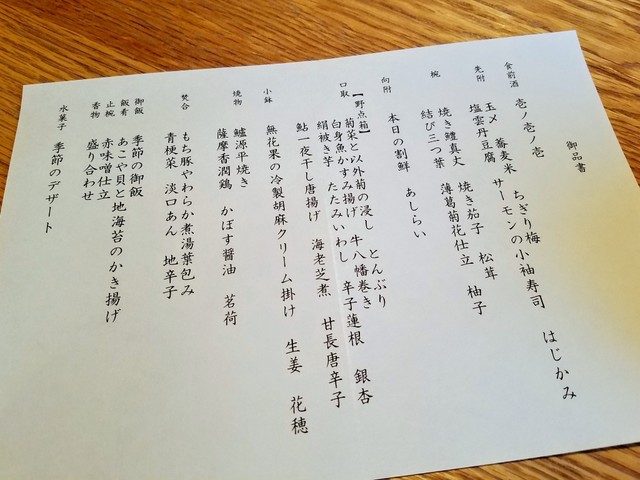 御品書
食前酒 壱ノ壱ノ壱
先附 玉〆 蕎麦米 ちぎり梅
塩雲丹豆腐 サーモンの小袖寿司 はじかみ
椀 焼き鱧真丈 焼き茄子 松茸 柚子
結び三つ葉 薄葛菊花仕立
向附 本日の割鮮 あしらい
口取 【野点箱】
菊菜と以外菊の浸し とんぶり
白身魚かすみ揚げ 牛八幡巻き
絹被き芋 たたみいわし 辛子蓮根 銀杏
鮎一夜干し唐揚げ 海老芝煮 甘長唐辛子
小鉢 無花果の冷製胡麻クリーム掛け 生姜 花穂
焼物 鱸源平焼き
薩摩香潤鶏 かぼす醤油 茗荷
焚合 もち豚やわらか煮湯葉包み
青梗菜 淡口あん 地辛子
御飯 季節の御飯
飯肴 あこや貝と地海苔のかき揚げ
止椀 赤味噌仕立
香物 盛り合わせ
水菓子 季節のデザート